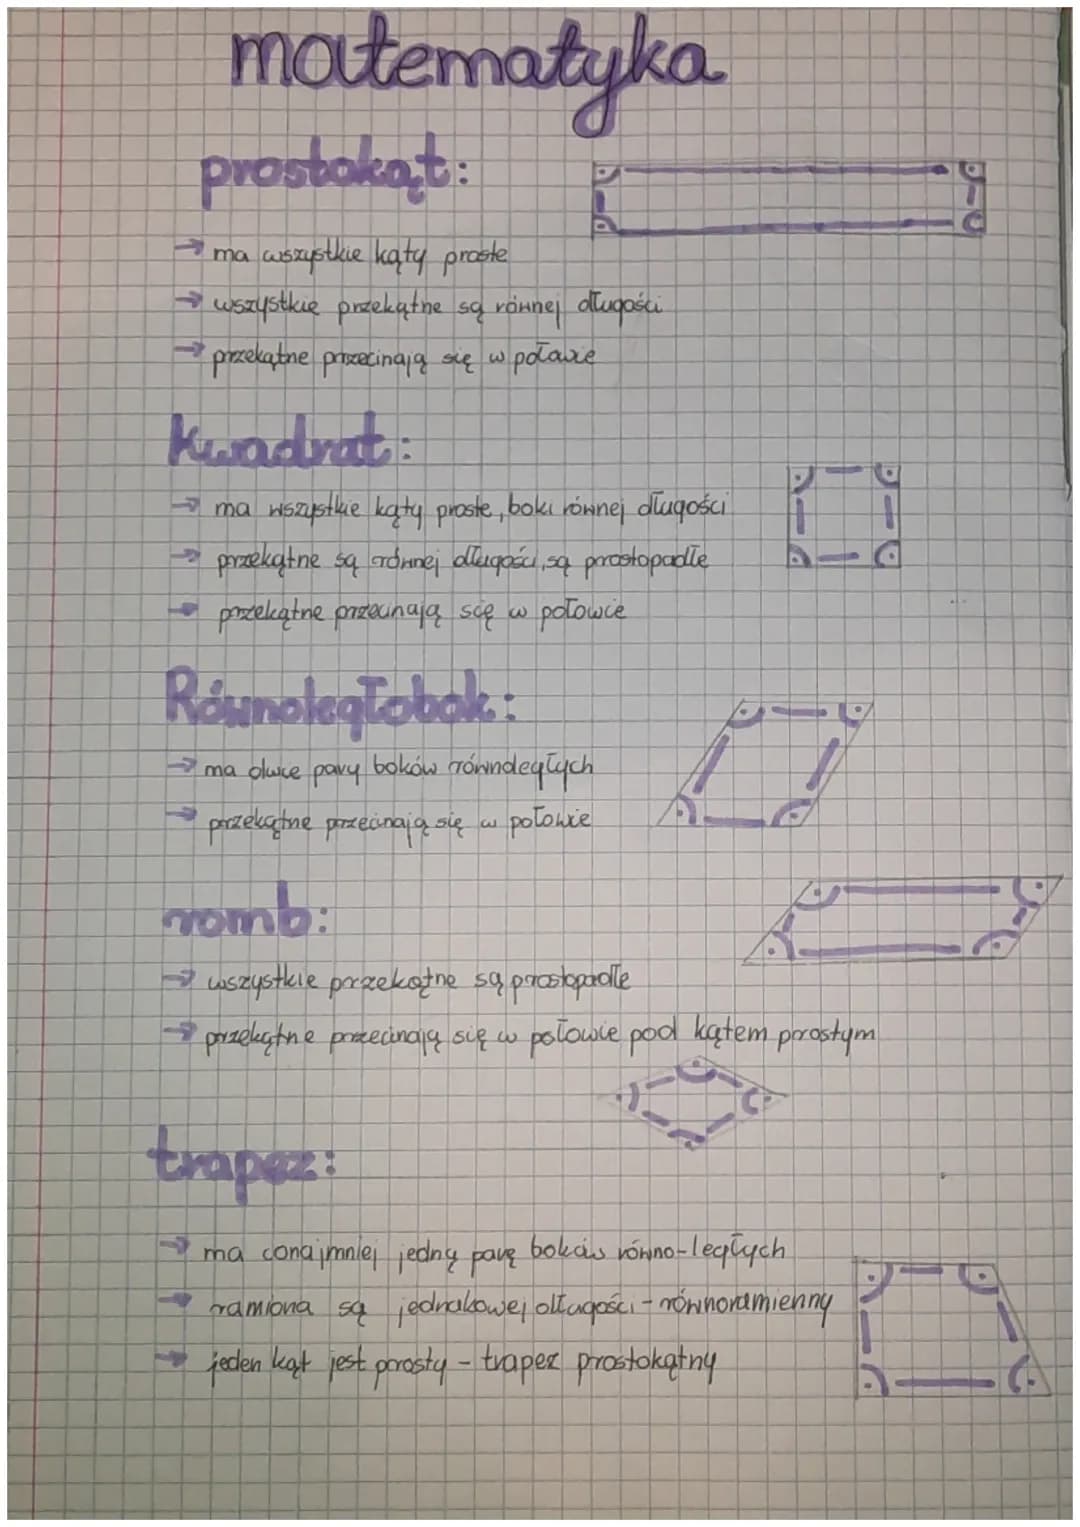 matematyka
prostokąt:
→ ma wszystkie kąty proste
→ wszystkie przekątne są równej długości
→ przekątne przecinają się w połowie
Kwadrat:
→ ma wszystkie kąty proste, boki równej długości
→ przekątne są równej długości, są prostopadłe
→ przekątne przecinają się w połowie
Równoległobok:
→ ma dwie pary boków równoległych
→ przekątne przecinają się w połowie
romb:
→ wszystkie przekątne są prostopadłe
→ przekątne przecinają się w połowie pod kątem prostym
trapez:
→ ma conajmniej jedną parę boków równo-ległych
→ ramiona są jednakowej długości - równoramienny
→ jeden kąt jest prosty - trapez prostokątny